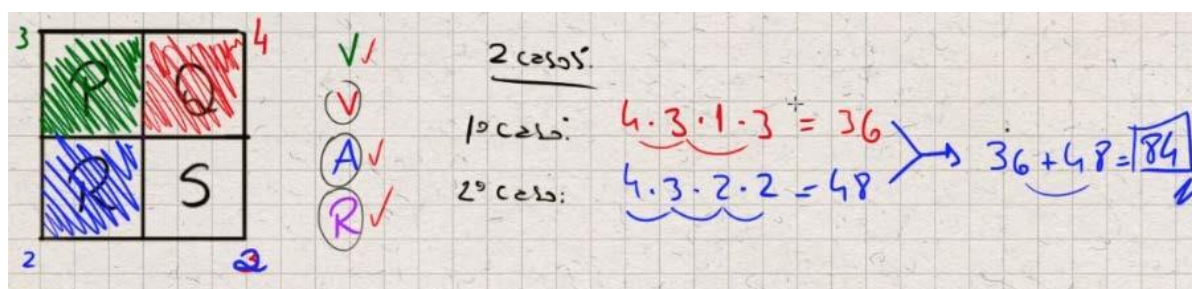 3 4
P Q
R S
2 2
V ✓
V
A ✓
R ✓
2 casos:
1º caso: 4·3·1·3 = 36
2º caso: 4·3·2·2 = 48
36+48=84